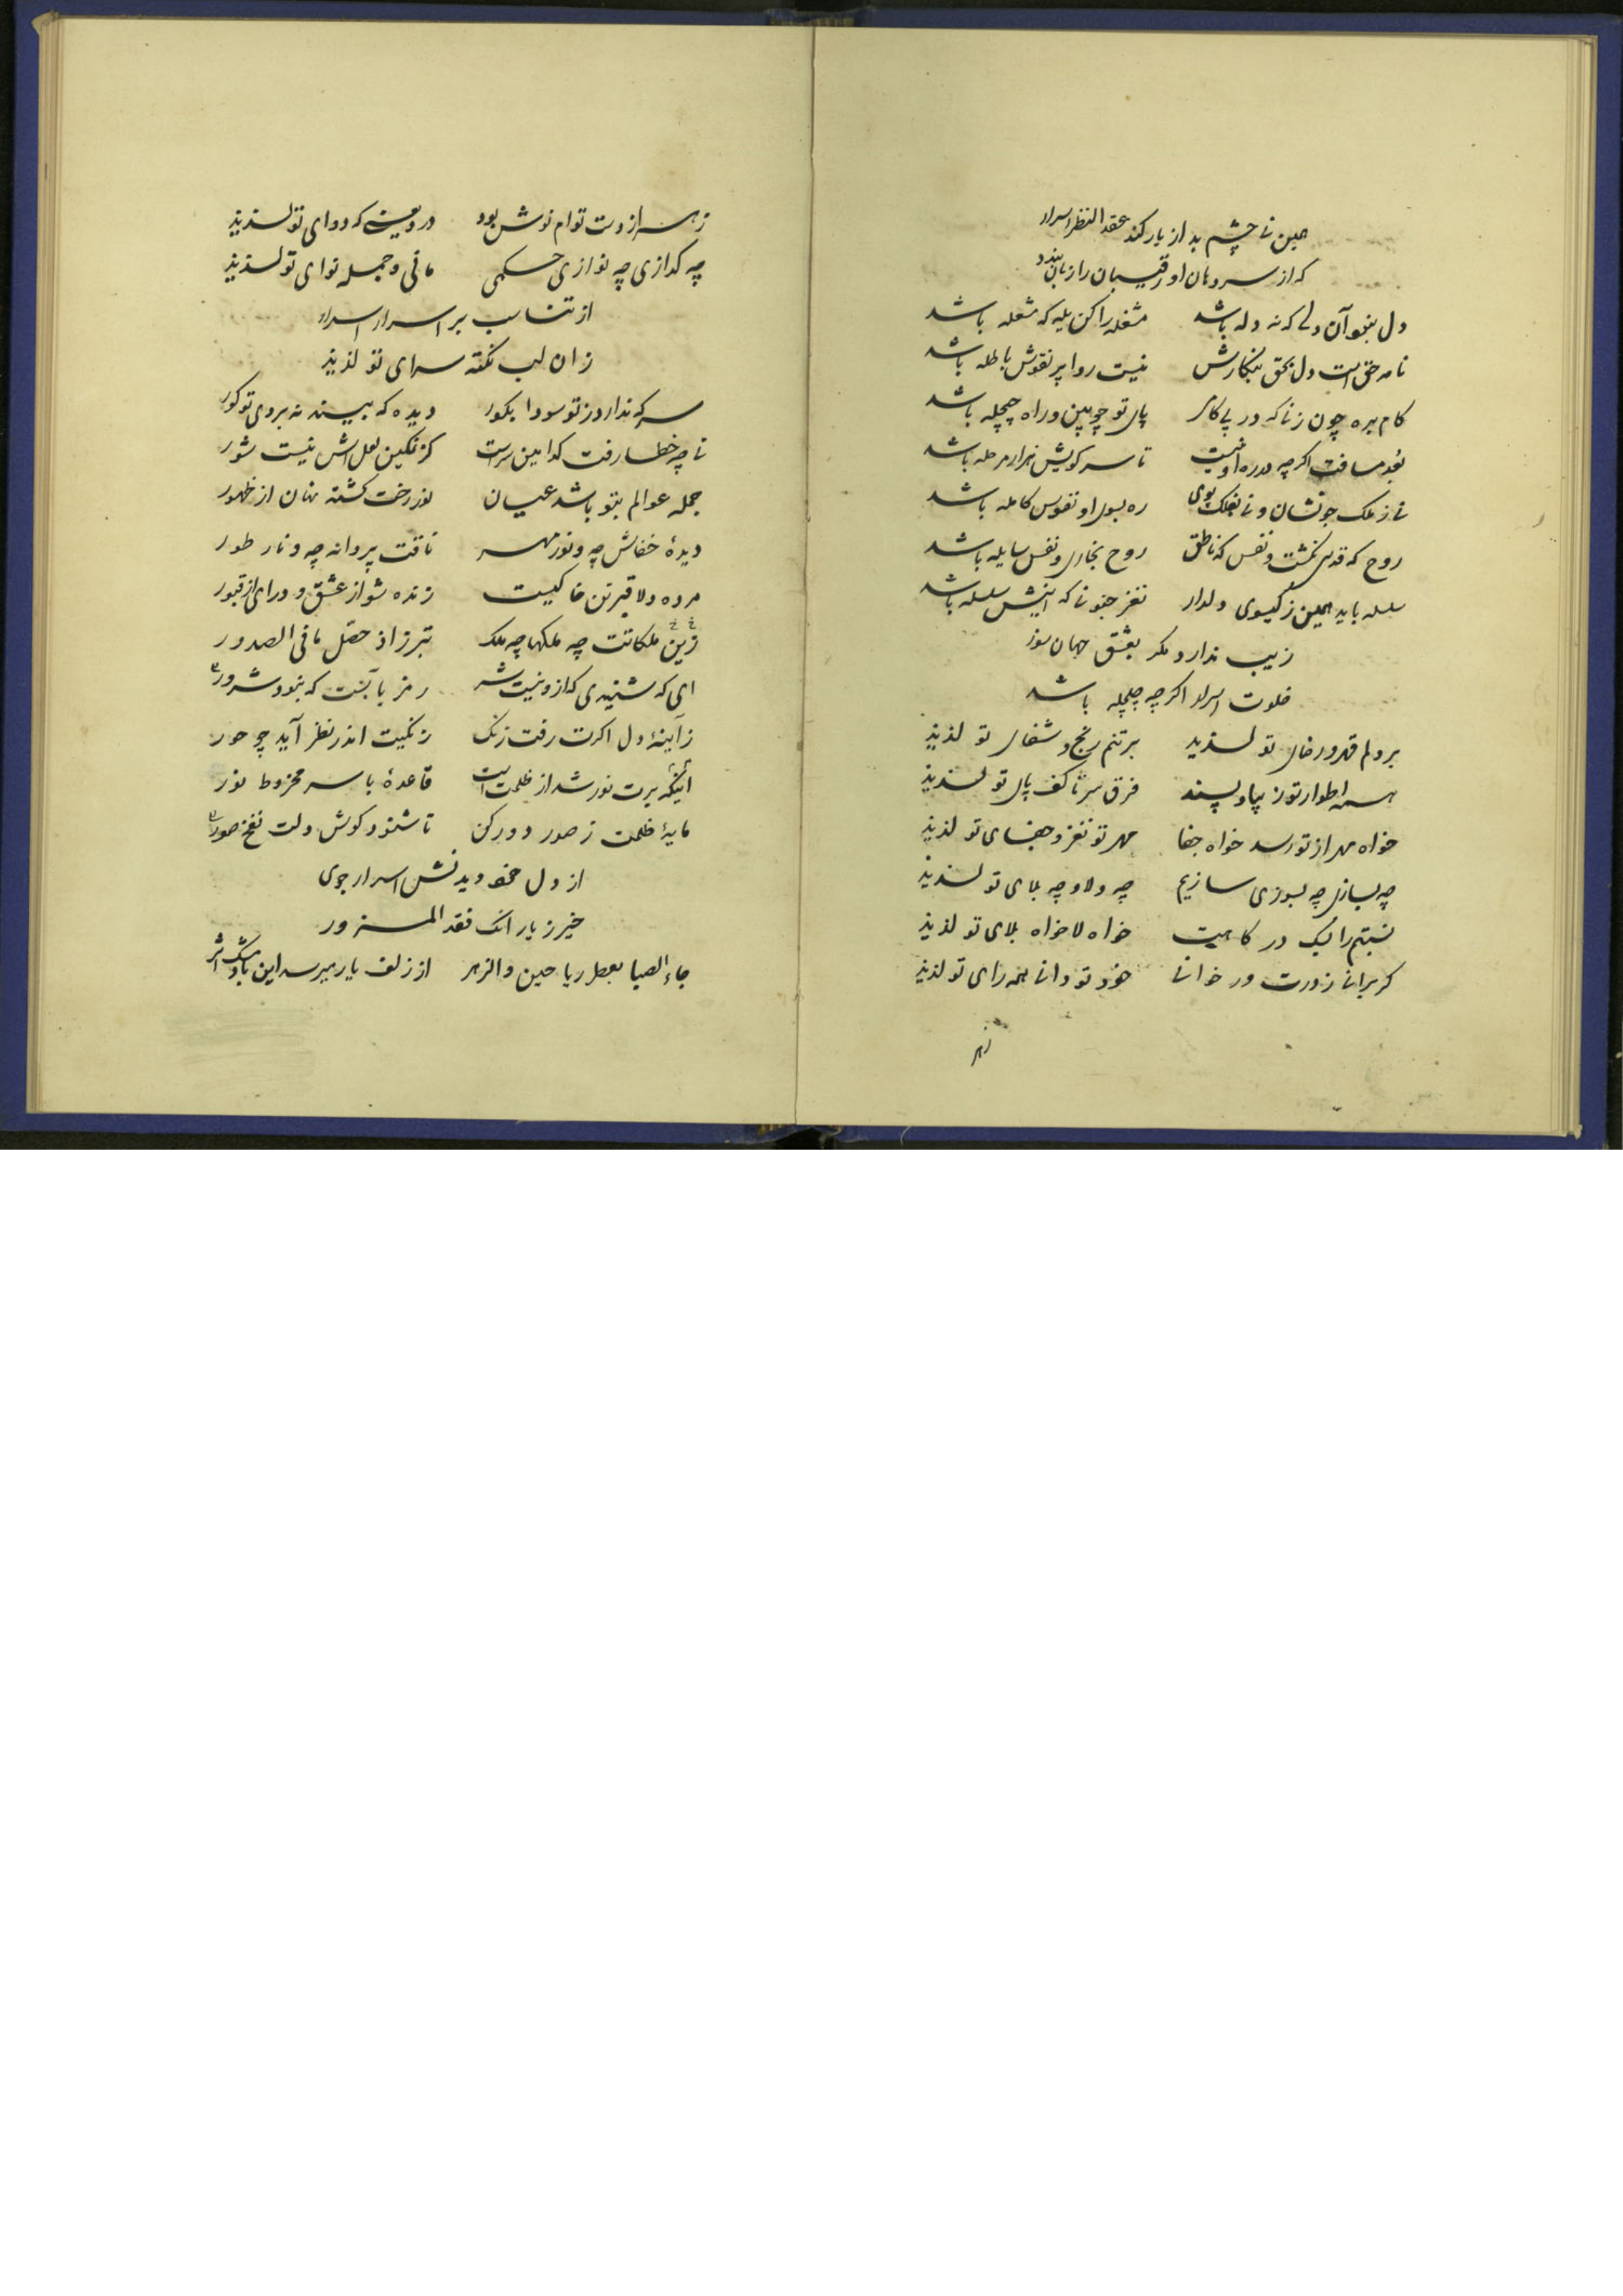 همین نی چشم بد از یار کند عقد النظر اسرار
که از سر دهان او رقیبان را زبان بندد
دل نبود آن دلی که نه دله باشد مشغله را کن یله که مشغله باشد
نامه حق است دل بحق بنگارش نیست روا پر نقوش باطله باشد
کام بره چون زنی که در پی کامی پای تو چوبین و راه چلچله باشد
بعد مسافت اگرچه در ره او نیست تا سر کویش هزار مرحله باشد
نی ز ملک جو نشان و نی بفلک پوی ره بسوی او نفوس کامله باشد
روح که قدسی نگشت و نفس که ناطق روح بخاری و نفس سایله باشد
سلسله باید همین ز گیسوی دلدار نغز جنونی که اینش سلسله باشد
زیب ندارد مگر بعشق جهان سوز
خلوت اسرار اگرچه چلچله باشد
بر دلم قهر و رضای تو لذیذ بر تنم رنج و شفای تو لذیذ
همه اطوار تو زیبا و پسند فرق سر تا کف پای تو لذیذ
خواه مهر از تو رسد خواه جفا مهر تو نغز و جفای تو لذیذ
چه بسازی چه بسوزی سازیم چه ولا و چه بلای تو لذیذ
نسبتم را لیک در کامیت خواه لا خواه بلای تو لذیذ
گر برانی ز درت ور خوانی خود تو دانی همه رای تو لذیذ
زهر
زهر از دست توام نوش بود درد عینی که دوای تو لذیذ
چه گدازی چه نوازی حکمی مانی و جمله نوای تو لذیذ
از تناسب بر اسرار اسرار
زان لب نکته سرای تو لذیذ
سر که ندارد ز تو سودا بگور دیده که بیند نه بروی تو کور
تا چه خطا رفت کدامین سر است کز نمکین لعل لبش نیست شور
جمله عوالم بتو باشد عیان نور رخت گشته نهان از ظهور
دیدۀ خفاش چه و نور مهر تاقت پروانه چه و نار طور
مرده دلا قبر تن خاکیست زنده شو از عشق و در آی از قبور
زین ملکاتت چه ملکها چه ملک تبرز اذ حصل ما فی الصدور
ای که شنیدی که ازو نیست شر رمز بآنست که نبود شرور
زآینۀ دل اگرت رفت زنگ زنگیت اندر نظر آید چو حور
آینکه برت نور شد از ظلمت است قاعدۀ با سر مخروط نور
مایۀ ظلمت ز صور دور کن تا شنود گوش دلت نفخ صور
از دل خود دیدنش اسرار جوی
خیز ز یار آنک فقد المزور
جاء الصبا بعطر ریاحین و الزهر از زلف یار میرسد این باد مشک اثر